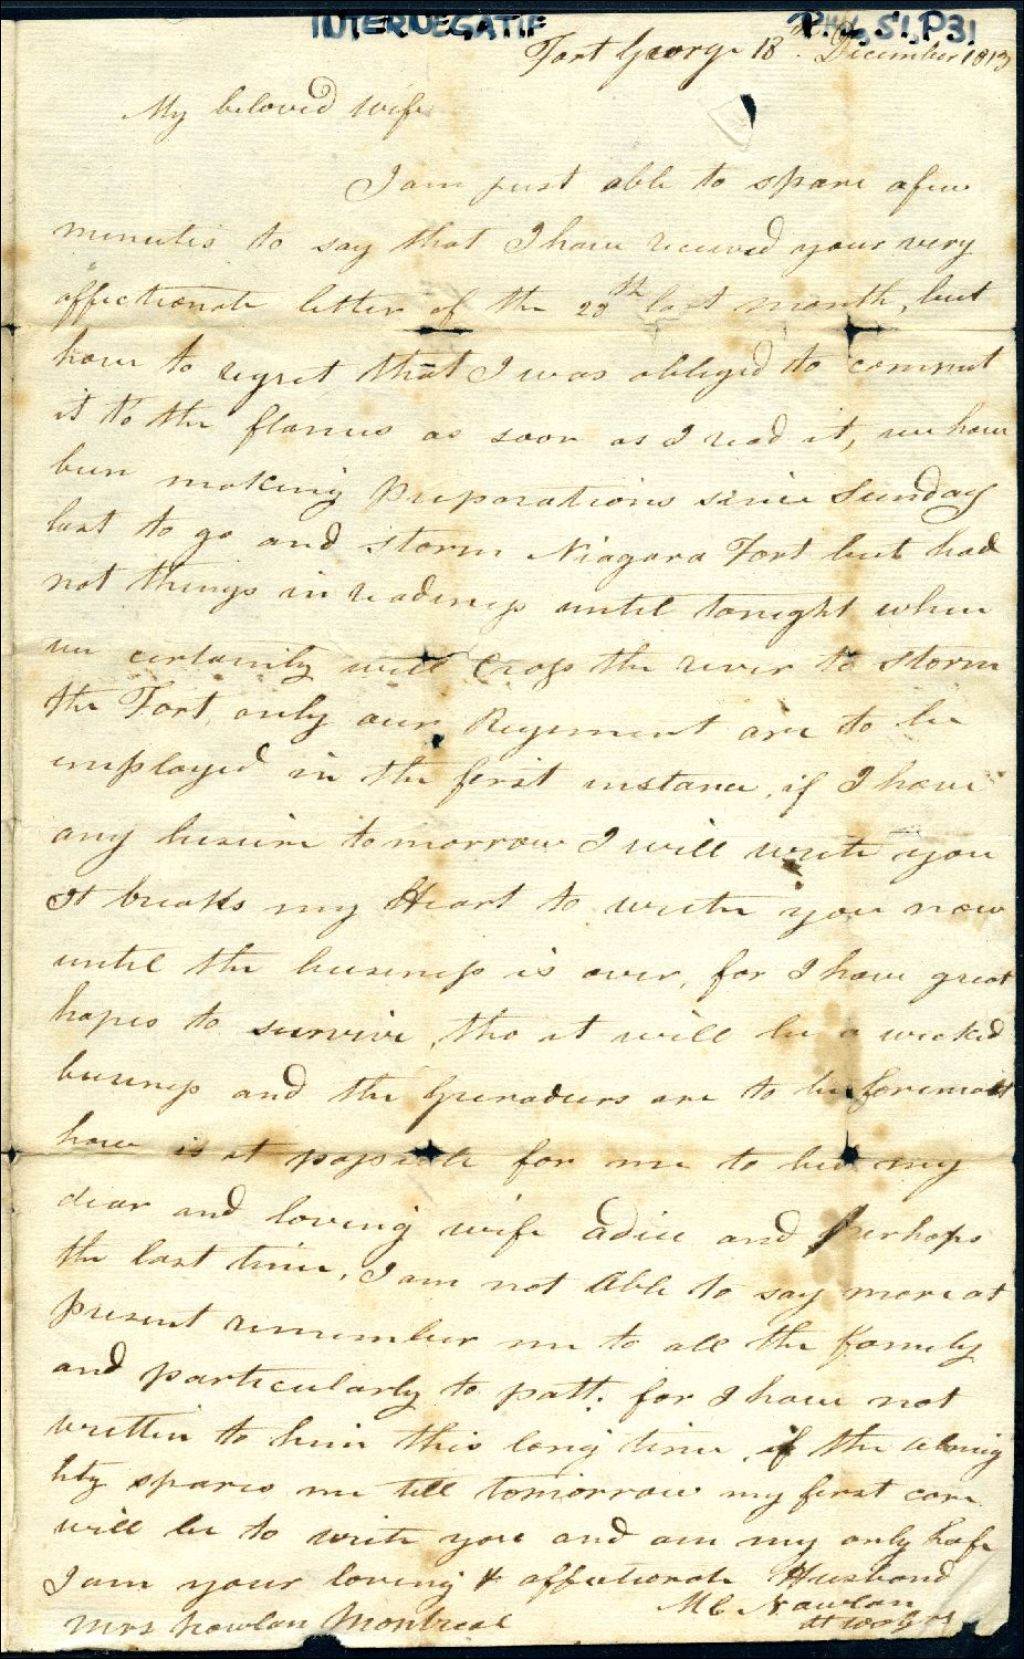 INTERNEGATIF
P. 51, P31
Fort George 18th December 1813
My beloved wife
I am just able to spare a few
minutes to say that I have received your very
affectionate letter of the 20th last month, but
have to regret that I was obliged to commit
it to the flames as soon as I read it, we have
been making Preparations since Sunday
last to go and storm Niagara Fort but had
not things in readiness until tonight when
we certainly will Cross the river to storm
the Fort, only our Regiment are to be
employed in the first instance, if I have
any liesure tomorrow I will write you
It breaks my Heart to write you now
until the business is over, for I have great
hopes to survive, tho it will be a wicked
business and the Grenadiers are to be foremost
how is it possible for me to bid my
dear and loving wife adieu and Perhaps
the last time, I am not Able to say more at
present remember me to all the Family
and particularly to patt. for I have not
written to him this long time, if the almig
hty spares me till tomorrow my first care
will be to write you and am my only hope
I am your loving & affectionate Husband
M C Nowlan
Mrs Nowlan Montreal